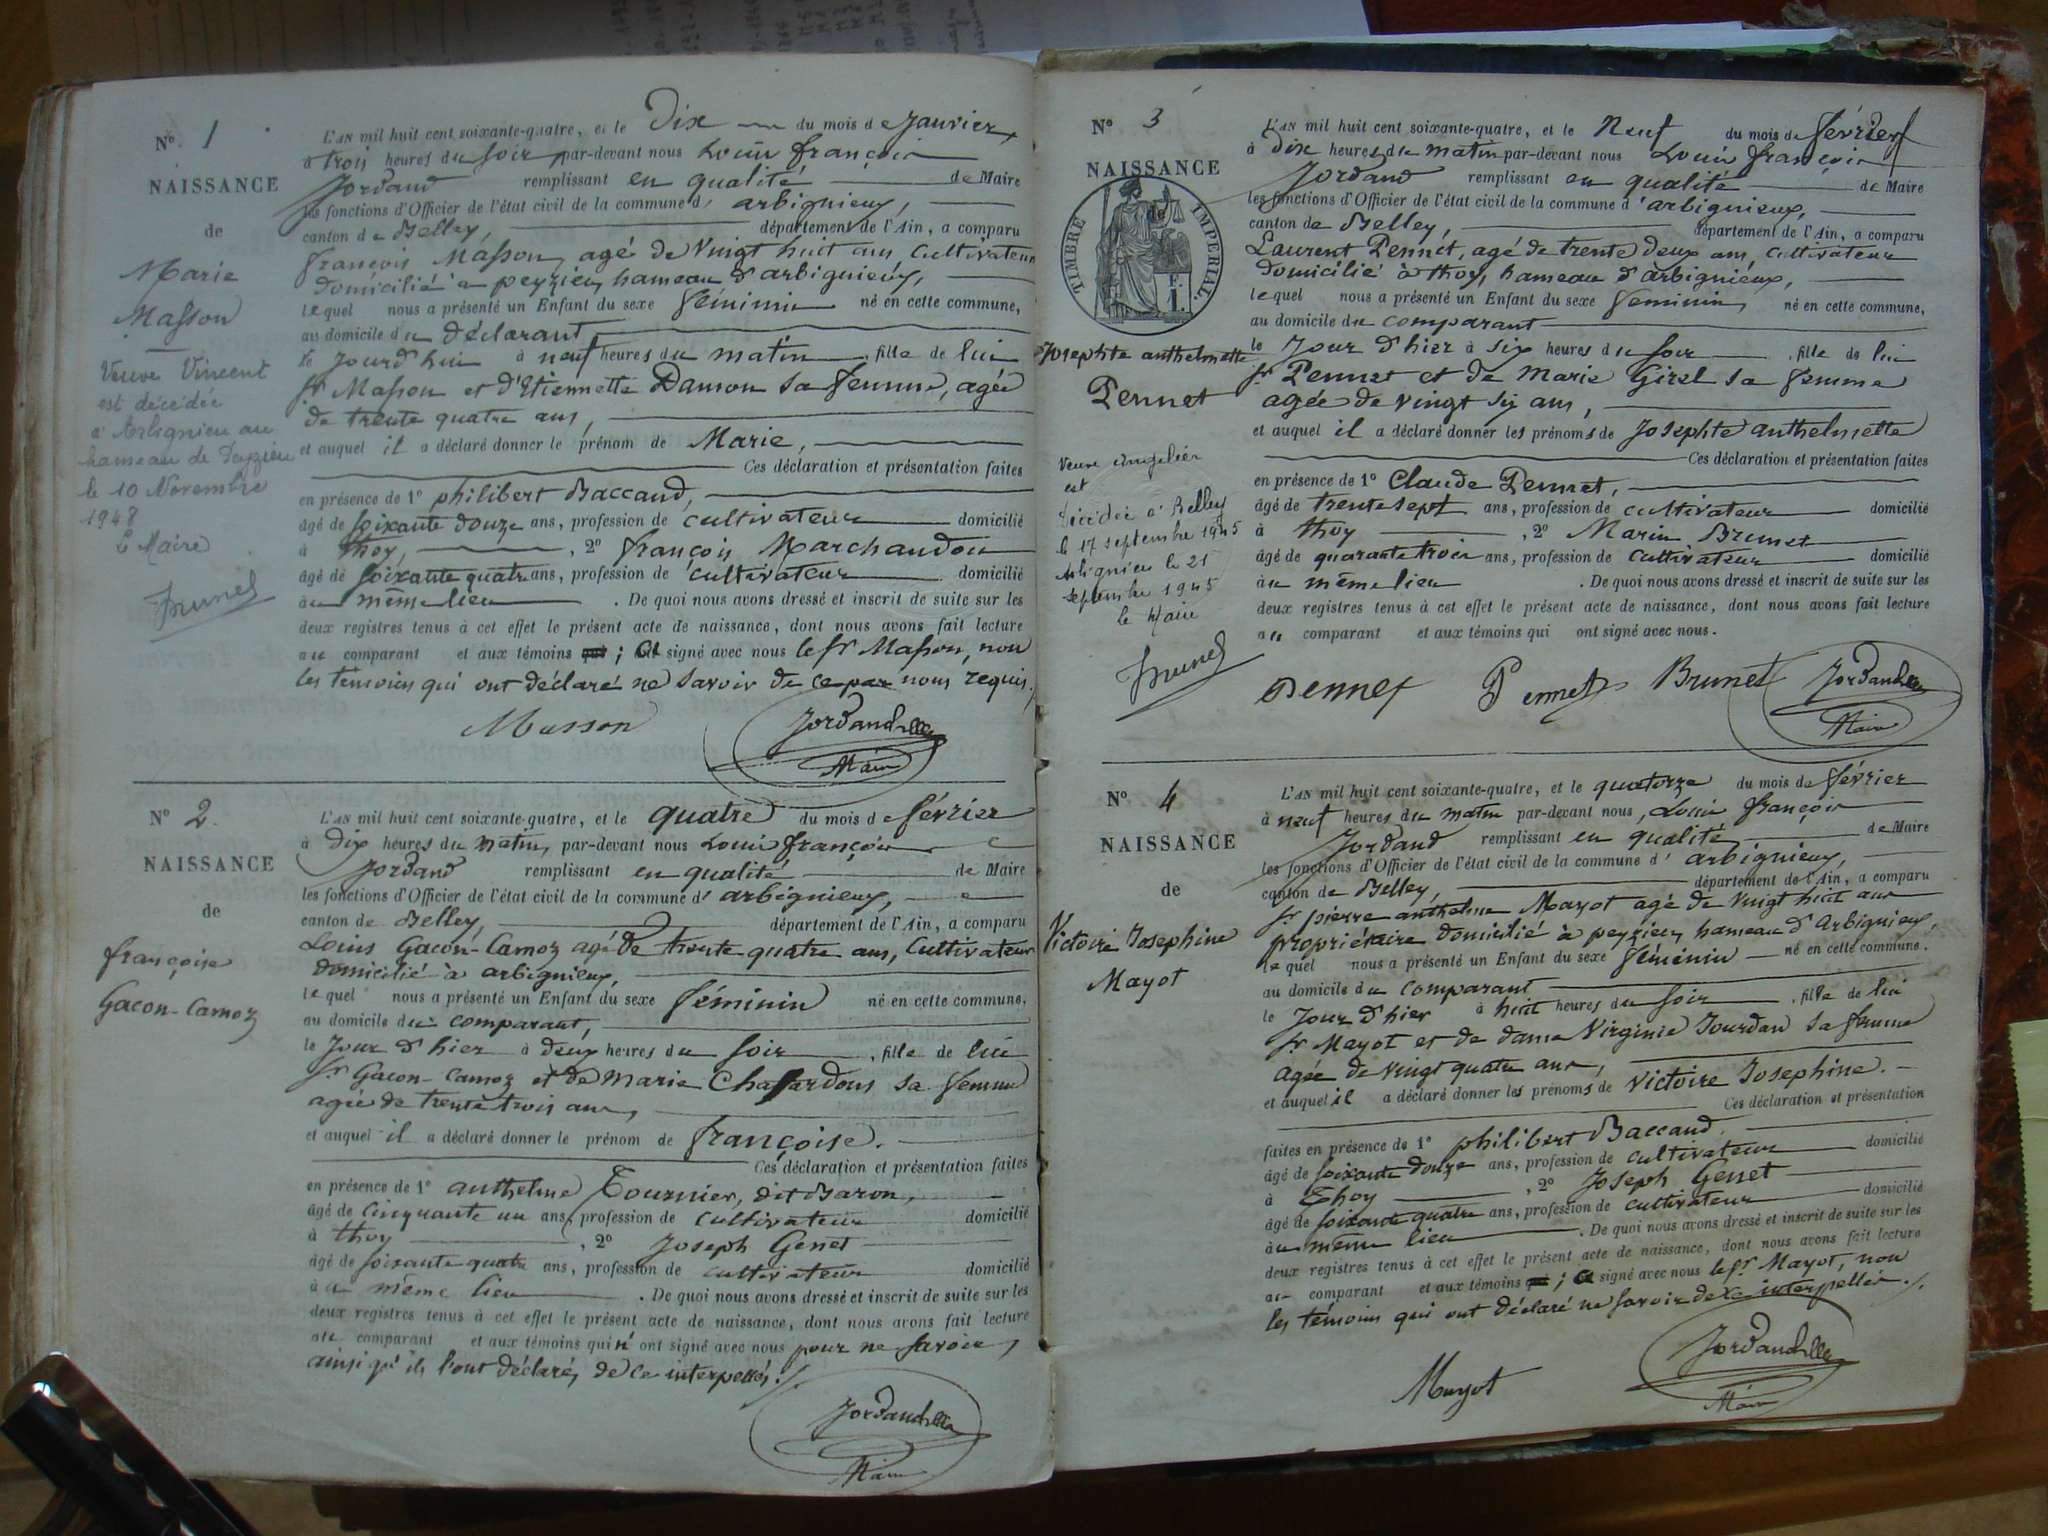 N° 1
NAISSANCE
de
Marie
Masson
Veuve Vincent
est décédée
à Arbignieu au
hameau de Peyzieu
le 10 Novembre
1948
Le Maire
Brunet
L'AN mil huit cent soixante-quatre, et le Dix du mois de Janvier
à trois heures du soir par-devant nous Louis françois
Jordand remplissant en qualité de Maire
les fonctions d'Officier de l'état civil de la commune d'arbignieux,
canton de Belley, département de l'Ain, a comparu
françois Masson, agé de vingt huit ans Cultivateur
domicilié à peyzieu, hameau d'arbignieux,
lequel nous a présenté un Enfant du sexe féminin né en cette commune,
au domicile du déclarant,
le Jourd'hui à neuf heures du matin, fille de lui
sr Masson et d'Etiennette Damon sa femme, agée
de trente quatre ans,
et auquel il a déclaré donner le prénom de Marie,
Ces déclaration et présentation faites
en présence de 1° philibert Baccaud,
âgé de soixante douze ans, profession de cultivateur domicilié
à thoy, 2° françois Marchandou
âgé de soixante quatre ans, profession de cultivateur domicilié
au même lieu. De quoi nous avons dressé et inscrit de suite sur les
deux registres tenus à cet effet le présent acte de naissance, dont nous avons fait lecture
au comparant et aux témoins qui ; et signé avec nous le sr Masson, non
les témoins qui ont déclaré ne savoir de ce par nous requis.
Masson Jordand
Maire
N° 2.
NAISSANCE
de
françoise
Gacon-Camoz
L'AN mil huit cent soixante-quatre, et le quatre du mois de février
à Dix heures du matin, par-devant nous Louis françois
Jordand remplissant en qualité de Maire
les fonctions d'Officier de l'état civil de la commune d'arbignieux,
canton de Belley, département de l'Ain, a comparu
Louis Gacon-Camoz agé de trente quatre ans, Cultivateur
domicilié à arbignieux,
lequel nous a présenté un Enfant du sexe féminin né en cette commune,
au domicile du comparant,
le Jour d'hier à deux heures du soir, fille de lui
sr Gacon-Camoz et de Marie Chasardous sa femme
agée de trente trois ans,
et auquel il a déclaré donner le prénom de françoise.
Ces déclaration et présentation faites
en présence de 1° anthelme Tournier, dit Baron,
âgé de cinquante un ans, profession de cultivateur domicilié
à thoy, 2° Joseph Genet
âgé de soixante quatre ans, profession de cultivateur domicilié
au même lieu. De quoi nous avons dressé et inscrit de suite sur les
deux registres tenus à cet effet le présent acte de naissance, dont nous avons fait lecture
au comparant et aux témoins qui n'ont signé avec nous pour ne savoir,
ainsi qu'ils l'ont déclaré, de ce interpellés.
Jordand
Maire
N° 3
NAISSANCE
TIMBRE IMPERIAL
Josephte anthelmette
Pennet
Veuve Angelier
est
décédée à Belley
le 17 septembre 1945
Arbignieu le 21
septembre 1945
le Maire
Brunet
L'AN mil huit cent soixante-quatre, et le Neuf du mois de février
à Dix heures du matin par-devant nous Louis françois
Jordand remplissant en qualité de Maire
les fonctions d'Officier de l'état civil de la commune d'arbignieux,
canton de Belley, département de l'Ain, a comparu
Laurent Pennet, agé de trente deux ans, Cultivateur
domicilié à thoy, hameau d'arbignieux,
lequel nous a présenté un Enfant du sexe féminin, né en cette commune,
au domicile du comparant
le Jour d'hier à six heures du soir, fille de lui
sr Pennet et de Marie Girel sa femme
agée de vingt six ans,
et auquel il a déclaré donner les prénoms de Josephte anthelmette
Ces déclaration et présentation faites
en présence de 1° Claude Pennet,
âgé de trente sept ans, profession de cultivateur domicilié
à thoy, 2° Marin Brunet
âgé de quarante trois ans, profession de cultivateur domicilié
au même lieu. De quoi nous avons dressé et inscrit de suite sur les
deux registres tenus à cet effet le présent acte de naissance, dont nous avons fait lecture
au comparant et aux témoins qui ont signé avec nous.
Pennet Pennet Brunet Jordand
Maire
N° 4
NAISSANCE
de
Victoire Josephine
Mayot
L'AN mil huit cent soixante-quatre, et le quatorze du mois de février
à neuf heures du matin par-devant nous, Louis françois
Jordand remplissant en qualité de Maire
les fonctions d'Officier de l'état civil de la commune d'arbignieux,
canton de Belley, département de l'Ain, a comparu
sr pierre anthelme Mayot agé de vingt huit ans
propriétaire domicilié à peyzieu, hameau d'Arbignieux,
lequel nous a présenté un Enfant du sexe féminin né en cette commune,
au domicile du comparant
le Jour d'hier à huit heures du soir, fille de lui
sr Mayot et de dame Virginie Jourdan sa femme
agée de vingt quatre ans,
et auquel il a déclaré donner les prénoms de Victoire Josephine.
Ces déclaration et présentation
faites en présence de 1° philibert Baccaud,
âgé de soixante douze ans, profession de cultivateur domicilié
à Thoy, 2° Joseph Genet
âgé de soixante quatre ans, profession de cultivateur domicilié
au même lieu. De quoi nous avons dressé et inscrit de suite sur les
deux registres tenus à cet effet le présent acte de naissance, dont nous avons fait lecture
au comparant et aux témoins qui ; et signé avec nous le sr Mayot, non
les témoins qui ont déclaré ne savoir de ce interpellés.
Mayot Jordand
Maire